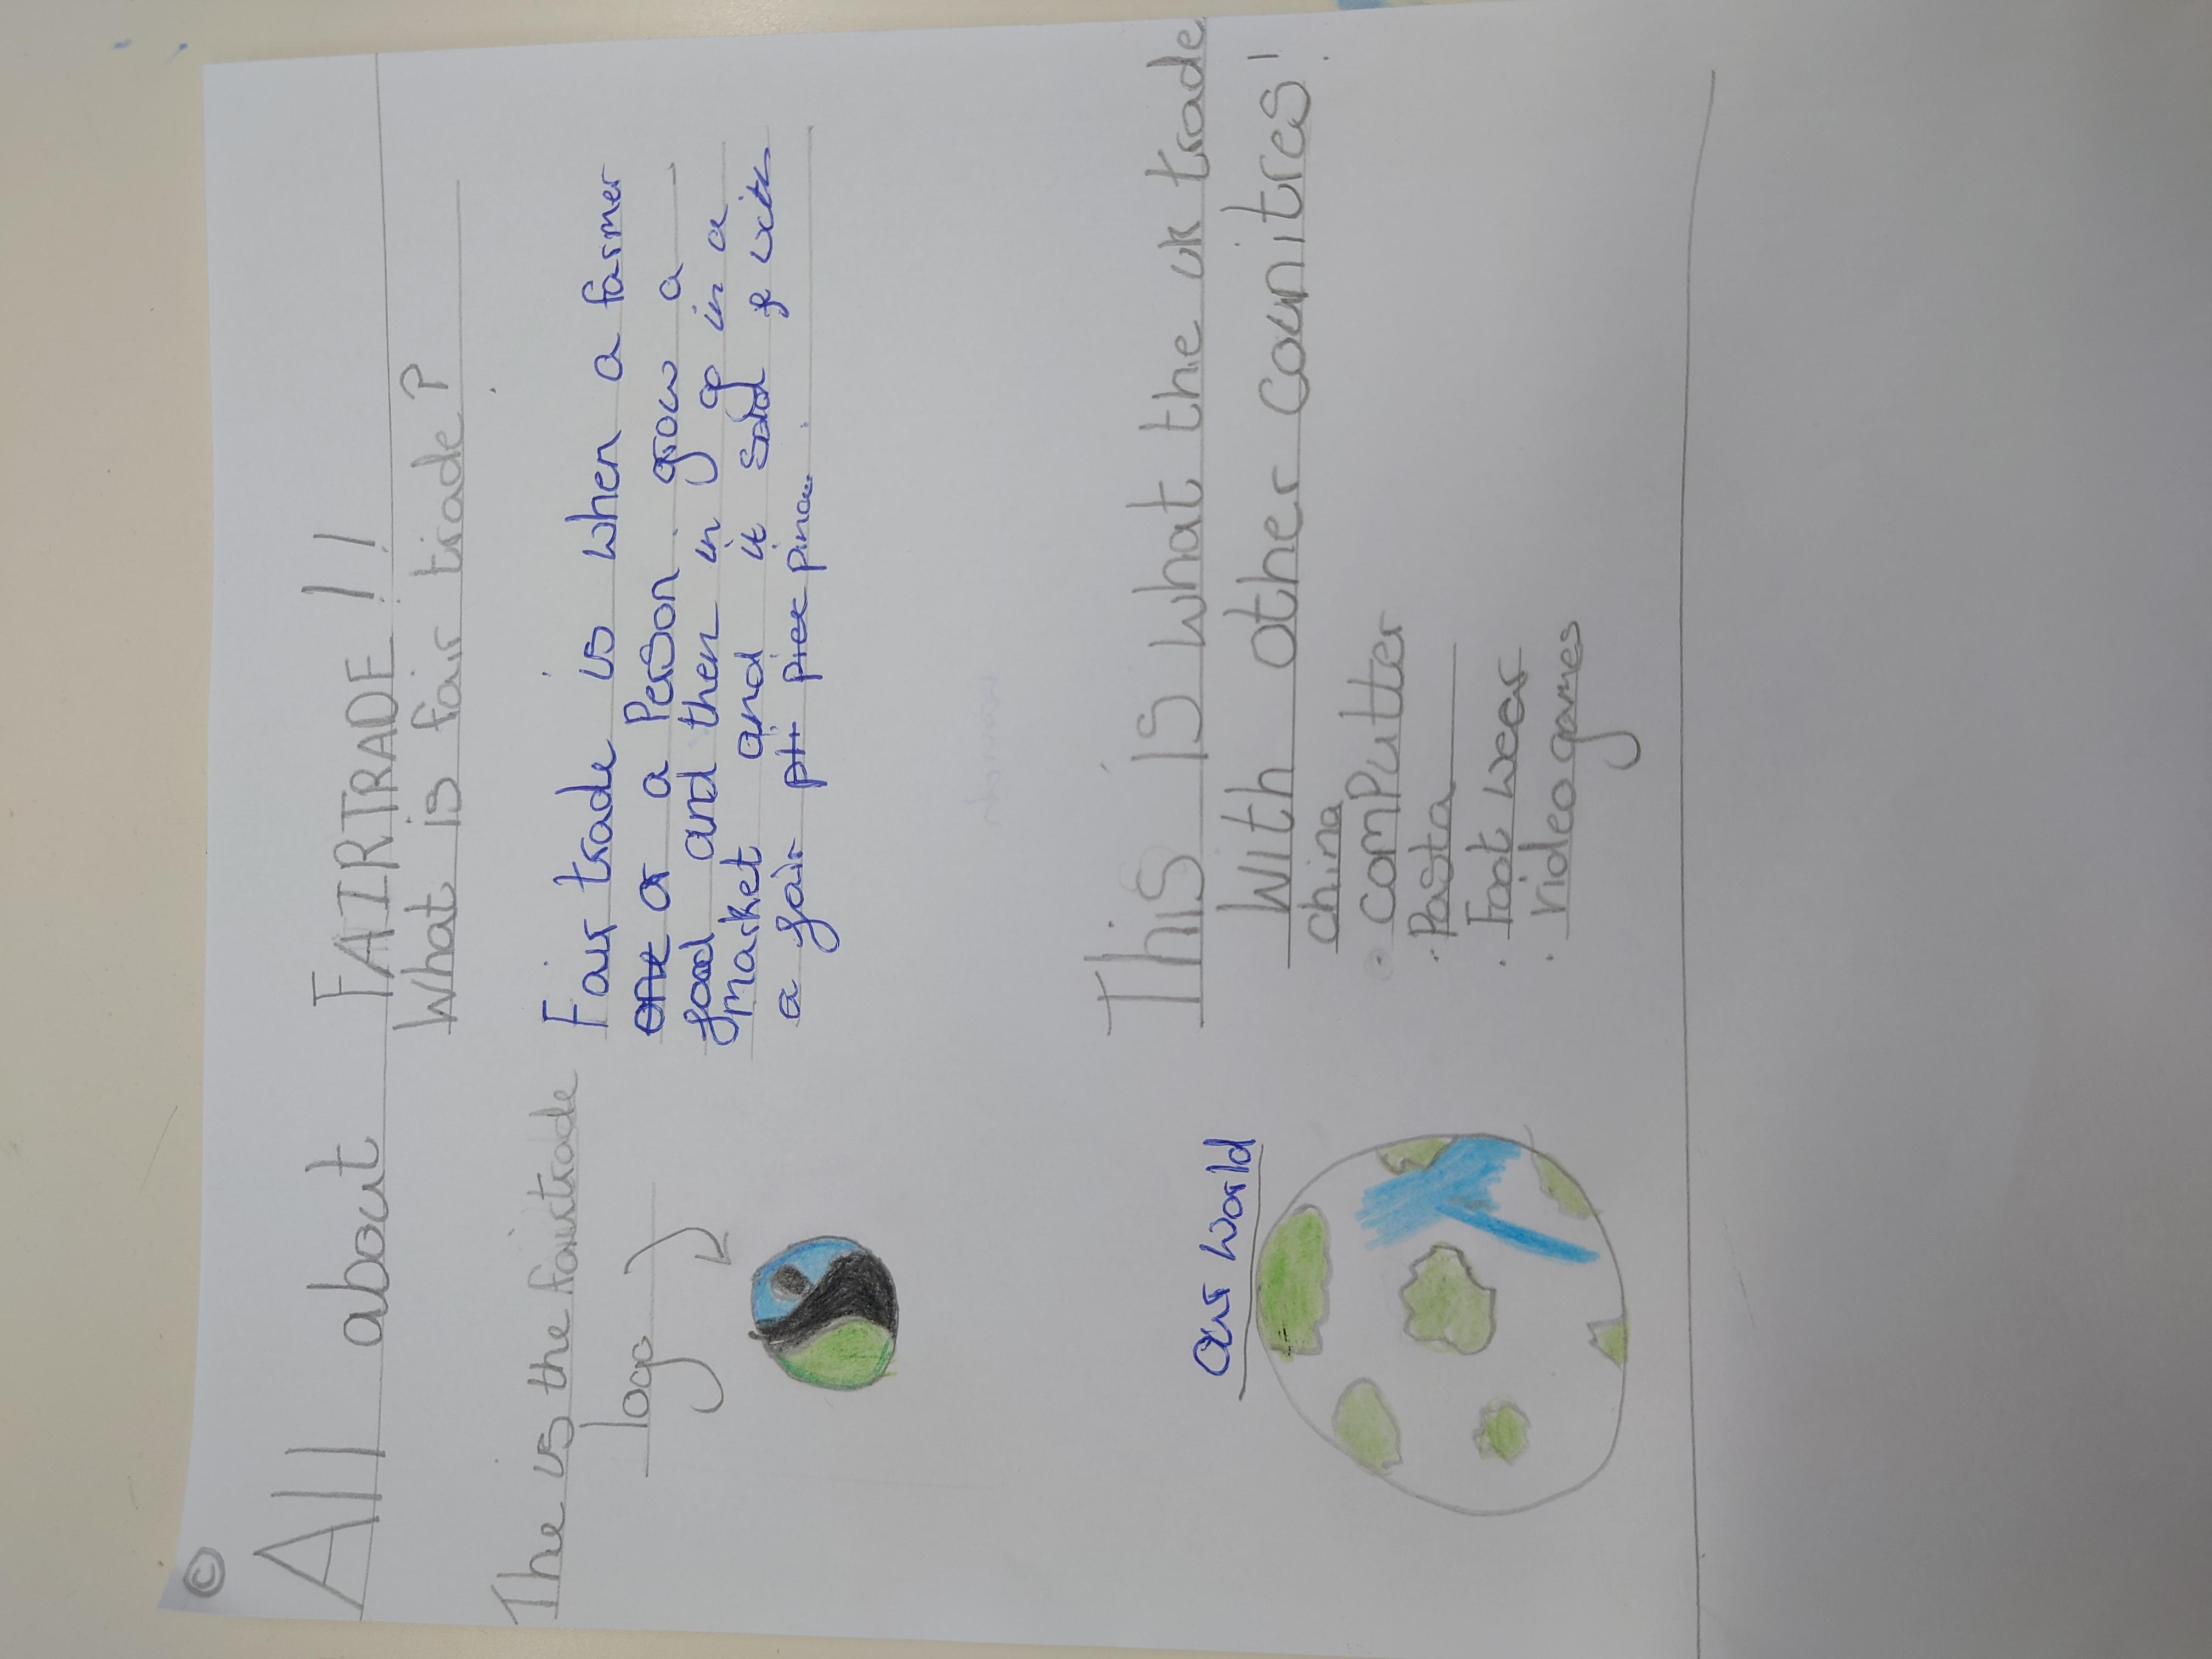 ©
All about FAIRTRADE !!
What is fair trade?
The is the fairtrade
logo
Fair trade is when a farmer
or a Person grow a
food and then in go in a
market and it sold with
a fair
our world
This is what the uk trade
With other counitres!
china
comPutter
Pasta
Foot wear
Video games